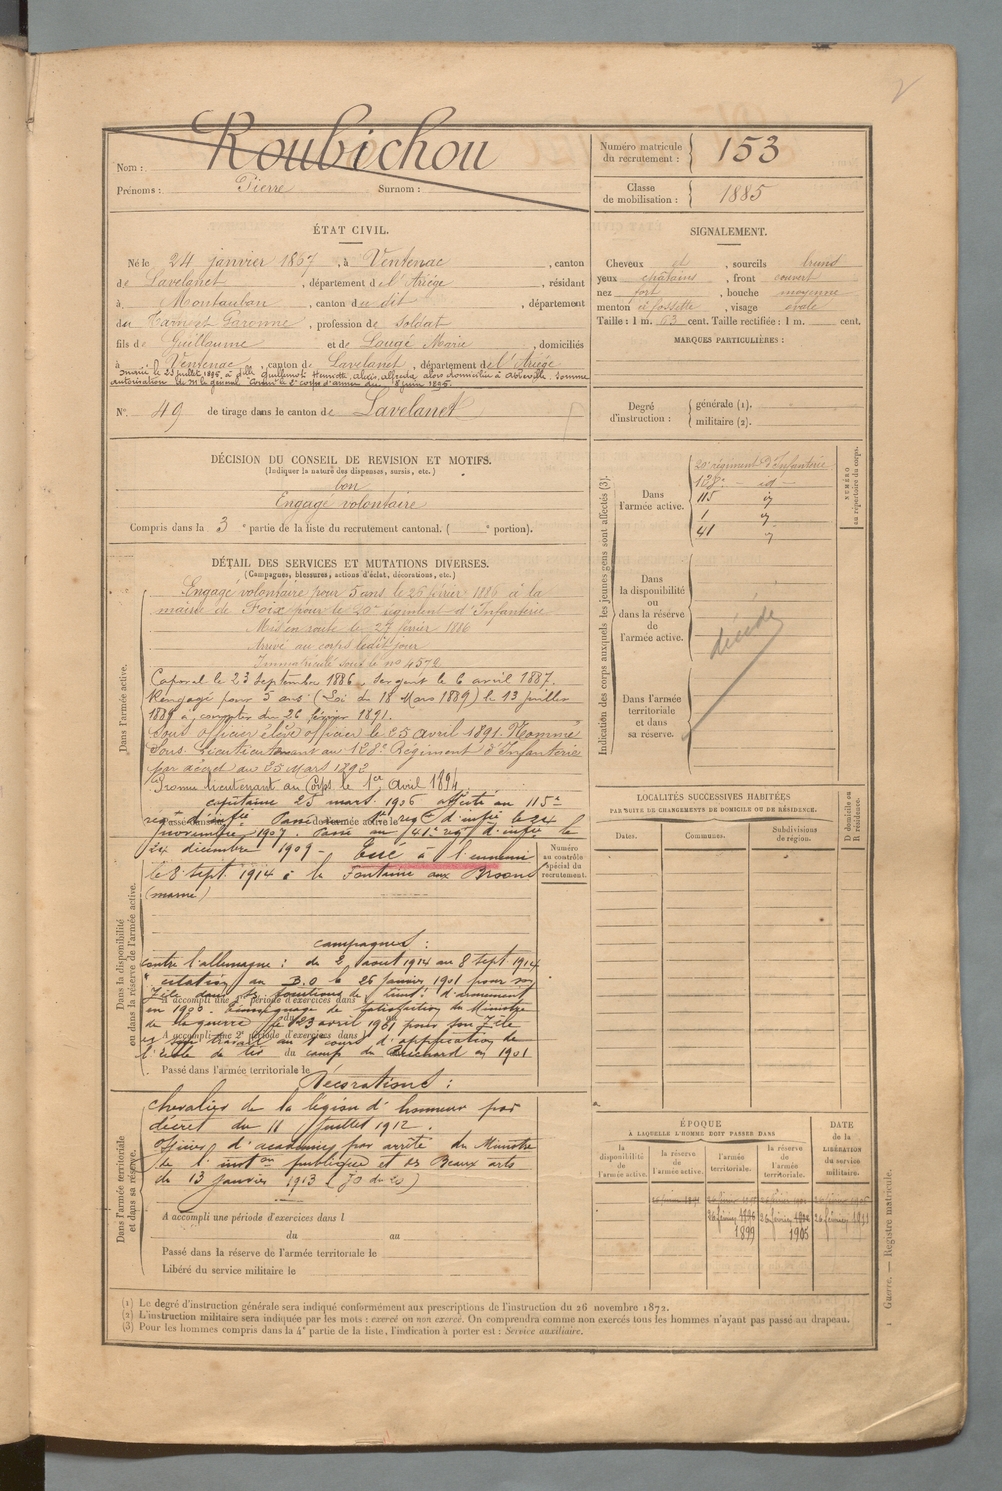 Nom : Roubichou
Prénoms : Pierre Surnom :
Numéro matricule du recrutement : 153
Classe de mobilisation : 1885
ÉTAT CIVIL.
Né le 24 janvier 1867, à Ventenac, canton
de Lavelanet, département de l'Ariège, résidant
à Montauban, canton du dit, département
du Tarn et Garonne, profession de soldat
fils de Guillaume et de Lougé Marie, domiciliés
à Ventenac, canton de Lavelanet, département de l'Ariège
marié le 23 juillet 1895 à Dlle Guillemot Henriette, alors domiciliée à Abbeville Somme
autorisation de Mr le général Comm t le 2e corps d'armée du 8 juin 1895.
N° 49 de tirage dans le canton de Lavelanet
SIGNALEMENT.
Cheveux et, sourcils bruns
yeux châtains, front couvert
nez fort, bouche moyenne
menton à fossette, visage ovale
Taille : 1 m. 63 cent. Taille rectifiée : 1 m. cent.
MARQUES PARTICULIÈRES :
Degré d'instruction : générale (1).
militaire (2).
DÉCISION DU CONSEIL DE REVISION ET MOTIFS.
(Indiquer la nature des dispenses, sursis, etc.)
bon
Engagé volontaire
Compris dans la 3e partie de la liste du recrutement cantonal. ( e portion).
DÉTAIL DES SERVICES ET MUTATIONS DIVERSES.
(Campagnes, blessures, actions d'éclat, décorations, etc.)
Dans l'armée active.
Engagé volontaire pour 5 ans le 26 février 1886 à la
mairie de Foix pour le 20e régiment d'Infanterie
Mis en route le 27 février 1886
Arrivé au corps le dit jour
Immatriculé sous le no 4572
Caporal le 23 septembre 1886. Sergent le 6 avril 1887.
Rengagé pour 5 ans (Loi du 18 Mars 1889) le 13 juillet
1889 à compter du 26 février 1891.
Sous officier élève officier le 25 avril 1891. Nommé
Sous-Lieutenant au 128e Régiment d'Infanterie
par décret du 25 Mars 1892
Promu lieutenant au Corps le 1er Avril 1894
capitaine 25 mars 1906 affecté au 115e
regt d'infie Passé au 1er regt d'infie le 24
novembre 1907. Passé au 41e regt d'infie le
24 décembre 1909 - Tué à l'ennemi
le 8 sept. 1914 à la Fontaine aux
(marne)
Numéro au contrôle spécial du recrutement.
Dans la disponibilité ou dans la réserve de l'armée active.
campagnes :
contre l'allemagne : de 2 août 1914 au 8 sept 1914
citation au B.O le 26 janvier 1901 pour son
zèle dans les fonctions de lieutt d'armement
en 1900. Témoignage de satisfaction du Ministre
de la guerre le 23 avril 1901 pour son zèle
et son travail au cours d'application de
l'école de tir du camp du Ruchard en 1901
A accompli une 1re période d'exercices dans l
A accompli une 2e période d'exercices dans l
Passé dans l'armée territoriale le
Décorations :
Dans l'armée territoriale et dans sa réserve.
chevalier de la légion d'honneur par
décret du 11 juillet 1912.
officier d'académie par arrêté du Ministre
de l'inston publique et des Beaux arts
du 13 janvier 1913 (JO du 20)
A accompli une période d'exercices dans l
du au
Passé dans la réserve de l'armée territoriale le
Libéré du service militaire le
Indication des corps auxquels les jeunes gens sont affectés (3).
NUMÉRO au répertoire du corps.
Dans l'armée active.
20e régiment d'Infanterie
128e - id -
115 id
1 id
41 id
Dans la disponibilité ou dans la réserve de l'armée active.
décédé
Dans l'armée territoriale et dans sa réserve.
LOCALITÉS SUCCESSIVES HABITÉES
PAR SUITE DE CHANGEMENTS DE DOMICILE OU DE RÉSIDENCE.
Dates. Communes. Subdivisions de région.
D domicile ou R résidence.
ÉPOQUE
A LAQUELLE L'HOMME DOIT PASSER DANS
la disponibilité de l'armée active.
la réserve de l'armée active.
l'armée territoriale.
la réserve de l'armée territoriale.
DATE de la LIBÉRATION du service militaire.
26 février 1896 26 février 1906 26 février 1911
1899 1905
(1) Le degré d'instruction générale sera indiqué conformément aux prescriptions de l'instruction du 26 novembre 1872.
(2) L'instruction militaire sera indiquée par les mots : exercé ou non exercé. On comprendra comme non exercés tous les hommes n'ayant pas passé au drapeau.
(3) Pour les hommes compris dans la 4e partie de la liste, l'indication à porter est : Service auxiliaire.
Guerre. — Registre matricule.